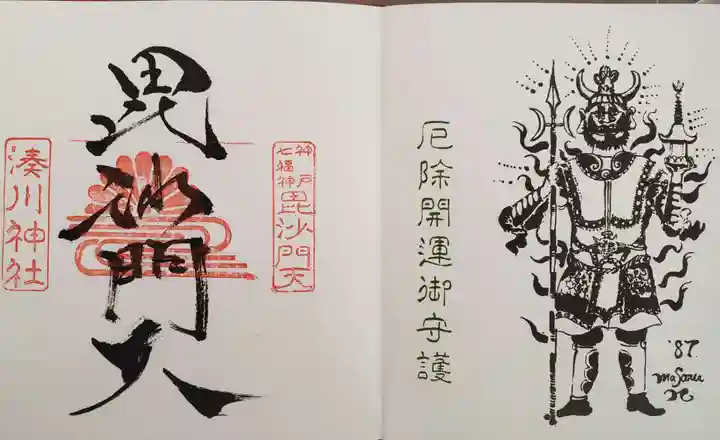 神戸
七福神
毘沙門天
毘沙門天
湊川神社
厄除開運御守護
'87.
masaru